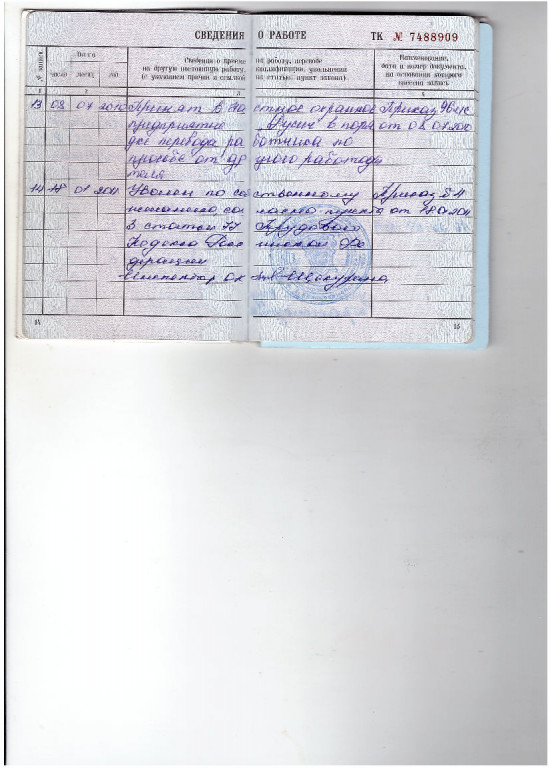 СВЕДЕНИЯ О РАБОТЕ ТК № 7488909
№ записи
Дата
число месяц год
Сведения о приеме на работу, переводе
на другую постоянную работу, квалификации, увольнении
(с указанием причин и ссылкой на статью, пункт закона)
Наименование,
дата и номер документа,
на основании которого
внесена запись
1 2 3 4
13 08 07 2010 Принят в частное охранное Приказ
предприятие в поряд от 08.07.2010
ке перевода работника по
просьбе от другого работода
теля
14 18 01 2011 Уволен по собственному Приказ
желанию, согласно пункта от 18.01.2011
3 статьи 77 Трудового
Кодекса Российской Фе
дерации
Инспектор ОК
14 15